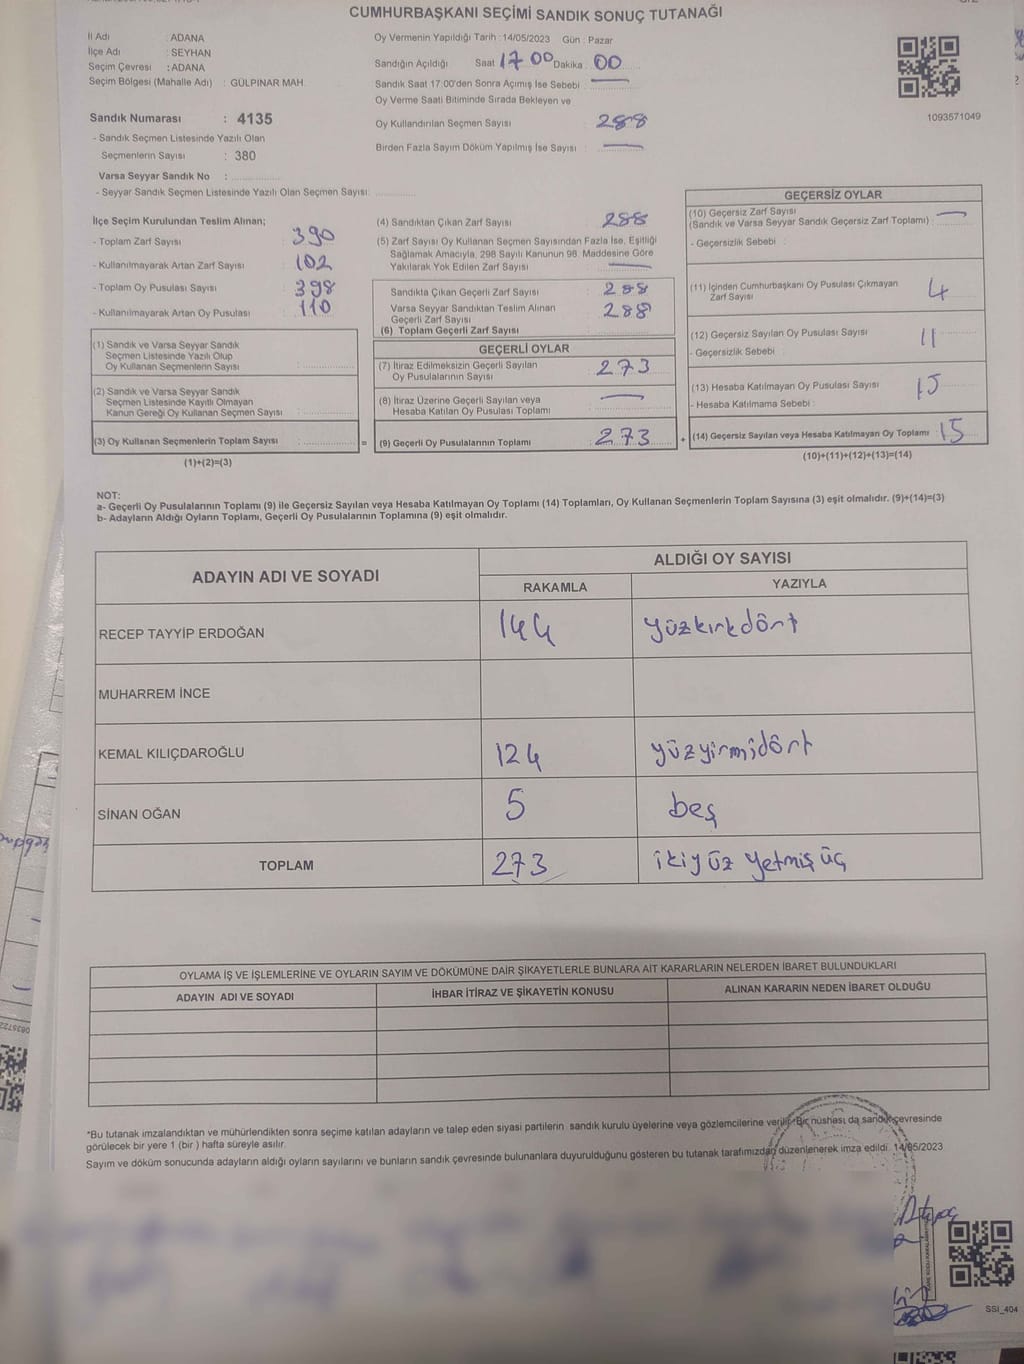 CUMHURBAŞKANI SEÇİMİ SANDIK SONUÇ TUTANAĞI
İl Adı : ADANA
İlçe Adı : SEYHAN
Seçim Çevresi : ADANA
Seçim Bölgesi (Mahalle Adı) : GÜLPINAR MAH.
Sandık Numarası : 4135
- Sandık Seçmen Listesinde Yazılı Olan
Seçmenlerin Sayısı : 380
Varsa Seyyar Sandık No :
- Seyyar Sandık Seçmen Listesinde Yazılı Olan Seçmen Sayısı:
Oy Vermenin Yapıldığı Tarih :14/05/2023 Gün : Pazar
Sandığın Açıldığı Saat 17 00 Dakika : 00
Sandık Saat 17:00'den Sonra Açımış İse Sebebi : —
Oy Verme Saati Bitiminde Sırada Bekleyen ve
Oy Kullandırılan Seçmen Sayısı : 288
Birden Fazla Sayım Döküm Yapılmış İse Sayısı : —
1093571049
İlçe Seçim Kurulundan Teslim Alınan;
- Toplam Zarf Sayısı : 390
- Kullanılmayarak Artan Zarf Sayısı : 102
- Toplam Oy Pusulası Sayısı : 398
- Kullanılmayarak Artan Oy Pusulası : 110
(1) Sandık ve Varsa Seyyar Sandık
Seçmen Listesinde Yazılı Olup
Oy Kullanan Seçmenlerin Sayısı :
(2) Sandık ve Varsa Seyyar Sandık
Seçmen Listesinde Kayıtlı Olmayan
Kanun Gereği Oy Kullanan Seçmen Sayısı :
(3) Oy Kullanan Seçmenlerin Toplam Sayısı : =
(1)+(2)=(3)
(4) Sandıktan Çıkan Zarf Sayısı : 288
(5) Zarf Sayısı Oy Kullanan Seçmen Sayısından Fazla İse, Eşitliği
Sağlamak Amacıyla, 298 Sayılı Kanunun 98. Maddesine Göre
Yakılarak Yok Edilen Zarf Sayısı : —
Sandıkta Çıkan Geçerli Zarf Sayısı : 288
Varsa Seyyar Sandıktan Teslim Alınan : 288
Geçerli Zarf Sayısı
(6) Toplam Geçerli Zarf Sayısı :
GEÇERLİ OYLAR
(7) İtiraz Edilmeksizin Geçerli Sayılan
Oy Pusulalarının Sayısı : 273
(8) İtiraz Üzerine Geçerli Sayılan veya
Hesaba Katılan Oy Pusulası Toplamı : —
(9) Geçerli Oy Pusulalarının Toplamı : 273 +
GEÇERSİZ OYLAR
(10) Geçersiz Zarf Sayısı
(Sandık ve Varsa Seyyar Sandık Geçersiz Zarf Toplamı) : —
- Geçersizlik Sebebi :
(11) İçinden Cumhurbaşkanı Oy Pusulası Çıkmayan
Zarf Sayısı : 4
(12) Geçersiz Sayılan Oy Pusulası Sayısı : 11
- Geçersizlik Sebebi :
(13) Hesaba Katılmayan Oy Pusulası Sayısı : 15
- Hesaba Katılmama Sebebi :
(14) Geçersiz Sayılan veya Hesaba Katılmayan Oy Toplamı : 15
(10)+(11)+(12)+(13)=(14)
NOT:
a- Geçerli Oy Pusulalarının Toplamı (9) ile Geçersiz Sayılan veya Hesaba Katılmayan Oy Toplamı (14) Toplamları, Oy Kullanan Seçmenlerin Toplam Sayısına (3) eşit olmalıdır. (9)+(14)=(3)
b- Adayların Aldığı Oyların Toplamı, Geçerli Oy Pusulalarının Toplamına (9) eşit olmalıdır.
ADAYIN ADI VE SOYADI
ALDIĞI OY SAYISI
RAKAMLA YAZIYLA
RECEP TAYYİP ERDOĞAN 144 yüzkırkdört
MUHARREM İNCE
KEMAL KILIÇDAROĞLU 124 yüzyirmidört
SİNAN OĞAN 5 beş
TOPLAM 273 ikiyüz yetmiş üç
OYLAMA İŞ VE İŞLEMLERİNE VE OYLARIN SAYIM VE DÖKÜMÜNE DAİR ŞİKAYETLERLE BUNLARA AİT KARARLARIN NELERDEN İBARET BULUNDUKLARI
ADAYIN ADI VE SOYADI İHBAR İTİRAZ VE ŞİKAYETİN KONUSU ALINAN KARARIN NEDEN İBARET OLDUĞU
*Bu tutanak imzalandıktan ve mühürlendikten sonra seçime katılan adayların ve talep eden siyasi partilerin sandık kurulu üyelerine veya gözlemcilerine verilir. Bir nüshası da sandık çevresinde
görülecek bir yere 1 (bir ) hafta süreyle asılır.
Sayım ve döküm sonucunda adayların aldığı oyların sayılarını ve bunların sandık çevresinde bulunanlara duyurulduğunu gösteren bu tutanak tarafımızdan düzenlenerek imza edildi. 14/05/2023
SSI_404